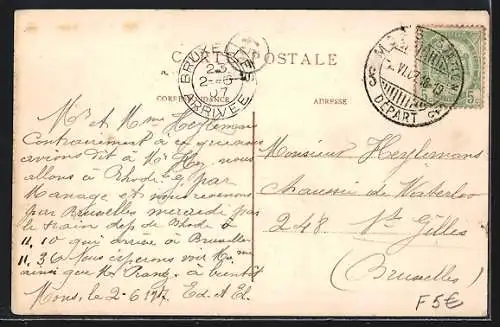 CARTE POSTALE
CORRESPONDANCE
ADRESSE
BRUXELLES
23
2-6
07
ARRIVÉE
MONS STATION
VI.07 18-19
DÉPART
5c
Mr et Mme Heylemans
Contrairement à ce que nous
avions dit à Mr Hey, nous
allons à Rhode Sg par
Manage et nous revenons
par Bruxelles mercredi par
le train dép de Rhode à
11,10 qui arrive à Bruxelles
11,36 Nous espérons voir Mr, Mme
ainsi que Mr Franz. à bientôt
Mons, le 2-6 1907. Ed et El.
Monsieur Heylemans
Chaussée de Waterloo
248 St Gilles
(Bruxelles)
F5€